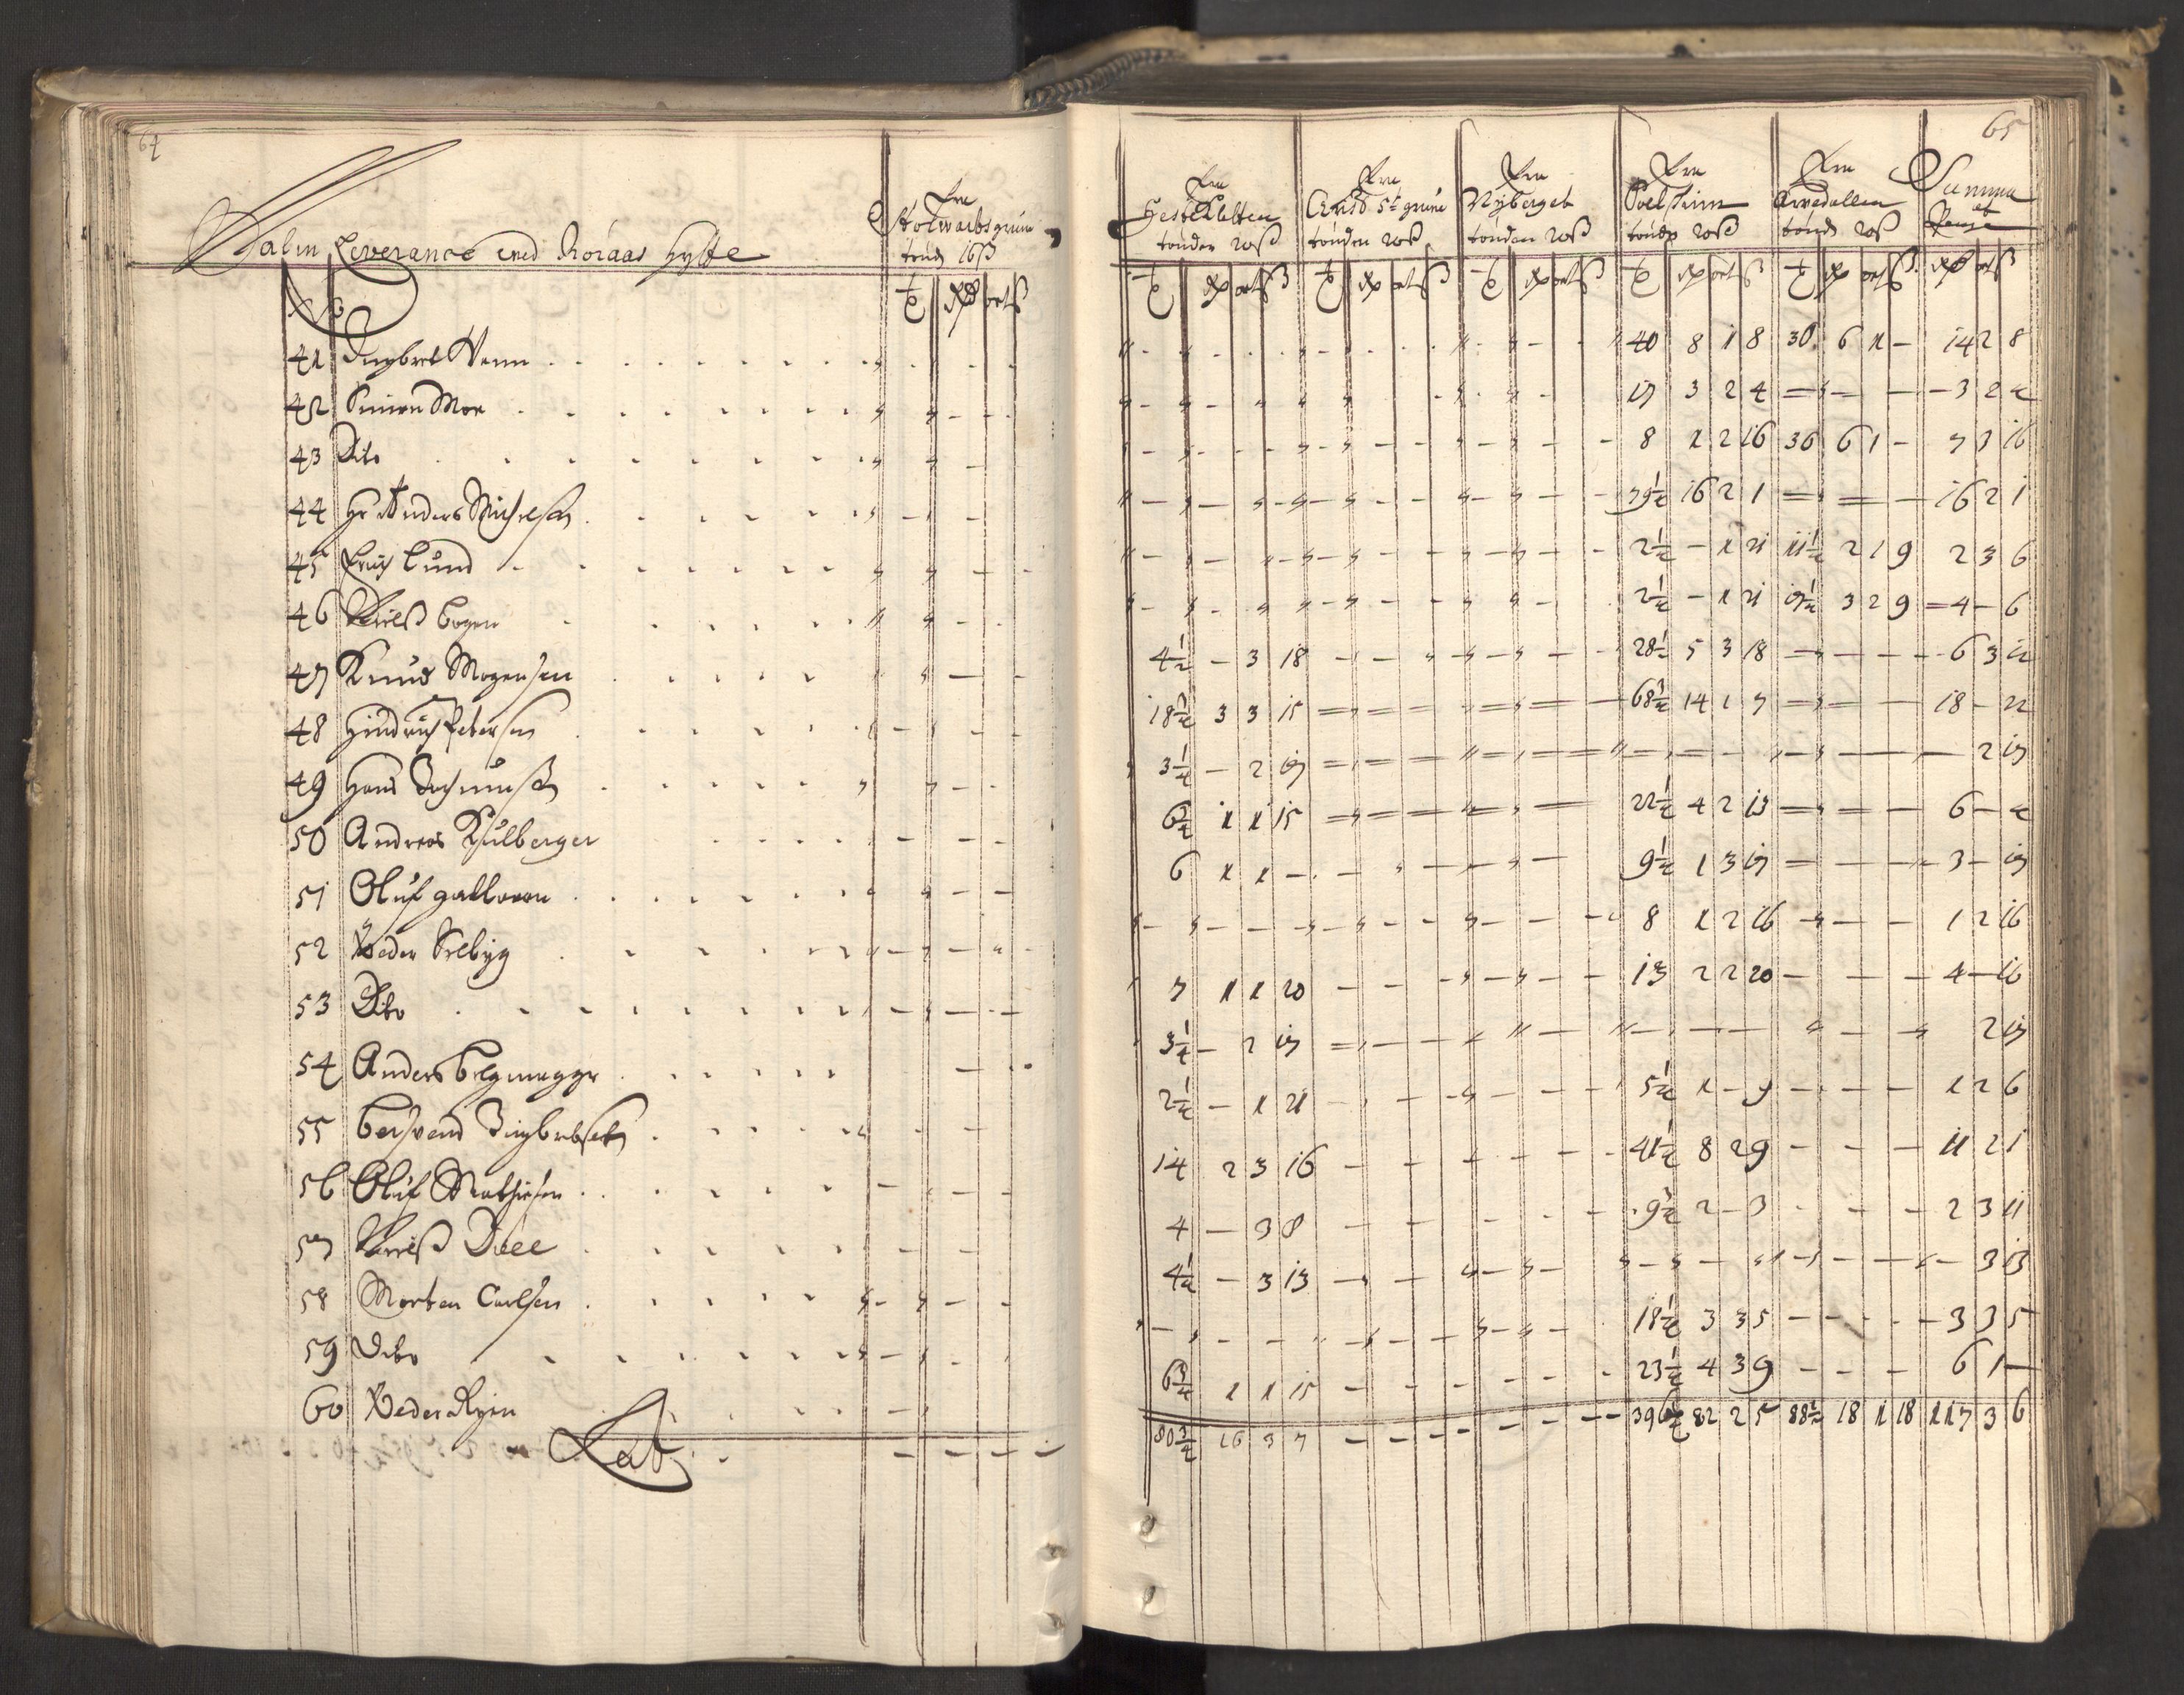 64
Malm Leverance ved Röraas Hytte
Fra Storwarts grube tønd 16ß
No
tr rdr ort ß
41 Ingbret Wenn
42 Simen Moe
43 Dito
44 Hr Anders Michelsen
45 Erich Lund
46 Niels Bogen
47 Knud Mogensen
48 Hindrich Petersen
49 Hans Jochumsen
50 Andreas Kulberger
51 Oluf galloeen
52 Peder Selbyg
53 Dito
54 Anders
55 Ingbretsen
56 Oluf Mathisen
57 Niels Duee
58 Morten Carlsen
59 Dito
60 Peder Ryen
Lat
65
Fra Hestekletten tønden 20ß
Fra Christ 5t grube tønden 20ß
Fra Nyberget tønden 20ß
Fra Soelskin tønde 20ß
Fra Arvedallen tønde 20ß
Summa at Penge
40 8 1 8 30 6 1 – 14 2 8
17 3 2 4 – 3 2 4
8 1 2 16 36 6 1 – 7 3 16
79½ 16 2 1 – 16 2 1
2½ – 1 21 11½ 2 1 9 2 3 6
2½ – 1 21 3 2 9 4 – 6
4½ – 3 18 28½ 5 3 18 6 3 12
18¾ 3 3 15 68¾ 14 1 7 18 – 22
3¼ – 2 17 – 2 17
6¾ 1 1 15 22½ 4 2 13 6 – 4
6 1 1 – 9½ 1 3 17 3 – 17
8 1 2 16 1 2 16
7 1 1 20 13 2 2 20 4 – 16
3¼ – 2 17 2 17
2½ – 1 21 5½ 1 – 9 1 2 6
14 2 3 16 41½ 8 2 9 11 2 1
4 – 3 8 9¾ 2 – 3 2 3 11
4¼ – 3 13 – 3 13
18½ 3 3 5 3 3 5
6¾ 1 1 15 23½ 4 3 9 6 1 –
80¾ 16 3 7 396¾ 82 2 5 88½ 18 1 18 117 3 6